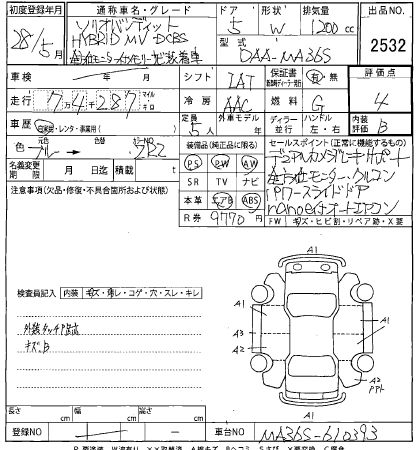 初度登録年月 通称車名・グレード ドア 形状 排気量 出品NO.
28/5月 ソリオバンディット 5 W 1200cc 2532
HYBRID MV DCBS 型式
全方位モニター付メモリーナビ装着車 DAA-MA36S
車検 年 月 シフト IAT 保証書 有・無 評価点
走行 7万4千287 マイル キロ 冷房 AAC 燃料 G 4
車歴 自家用・レンタ・事業用( ) 定員 5人 外車モデル 年 ディーラー 並行 ハンドル 左・右 内装評価 B
色 ブルー カラーNO. ZRZ 装備品(純正品に限る) セールスポイント(正常に機能するもの)
名義変更期限 月 日 積載 t PS PW AW デュアルカメラブレーキサポート
注意事項(欠品・修復・不具合箇所および状態) SR TV ナビ 全方位モニター・クルコン
本革 エアB ABS パワースライドドア
R券 9770円 nanoe付オートエアコン
FW キズ・ヒビ割・リペア跡・X要
検査員記入 内装 キズ・汚レ・コゲ・穴・スレ・キレ
外装タッチアップ
キズB
A1
A1
A3
A2
A1
A2
A1
長さ cm 幅 cm 高さ cm
登録NO 車台NO MA36S-610393